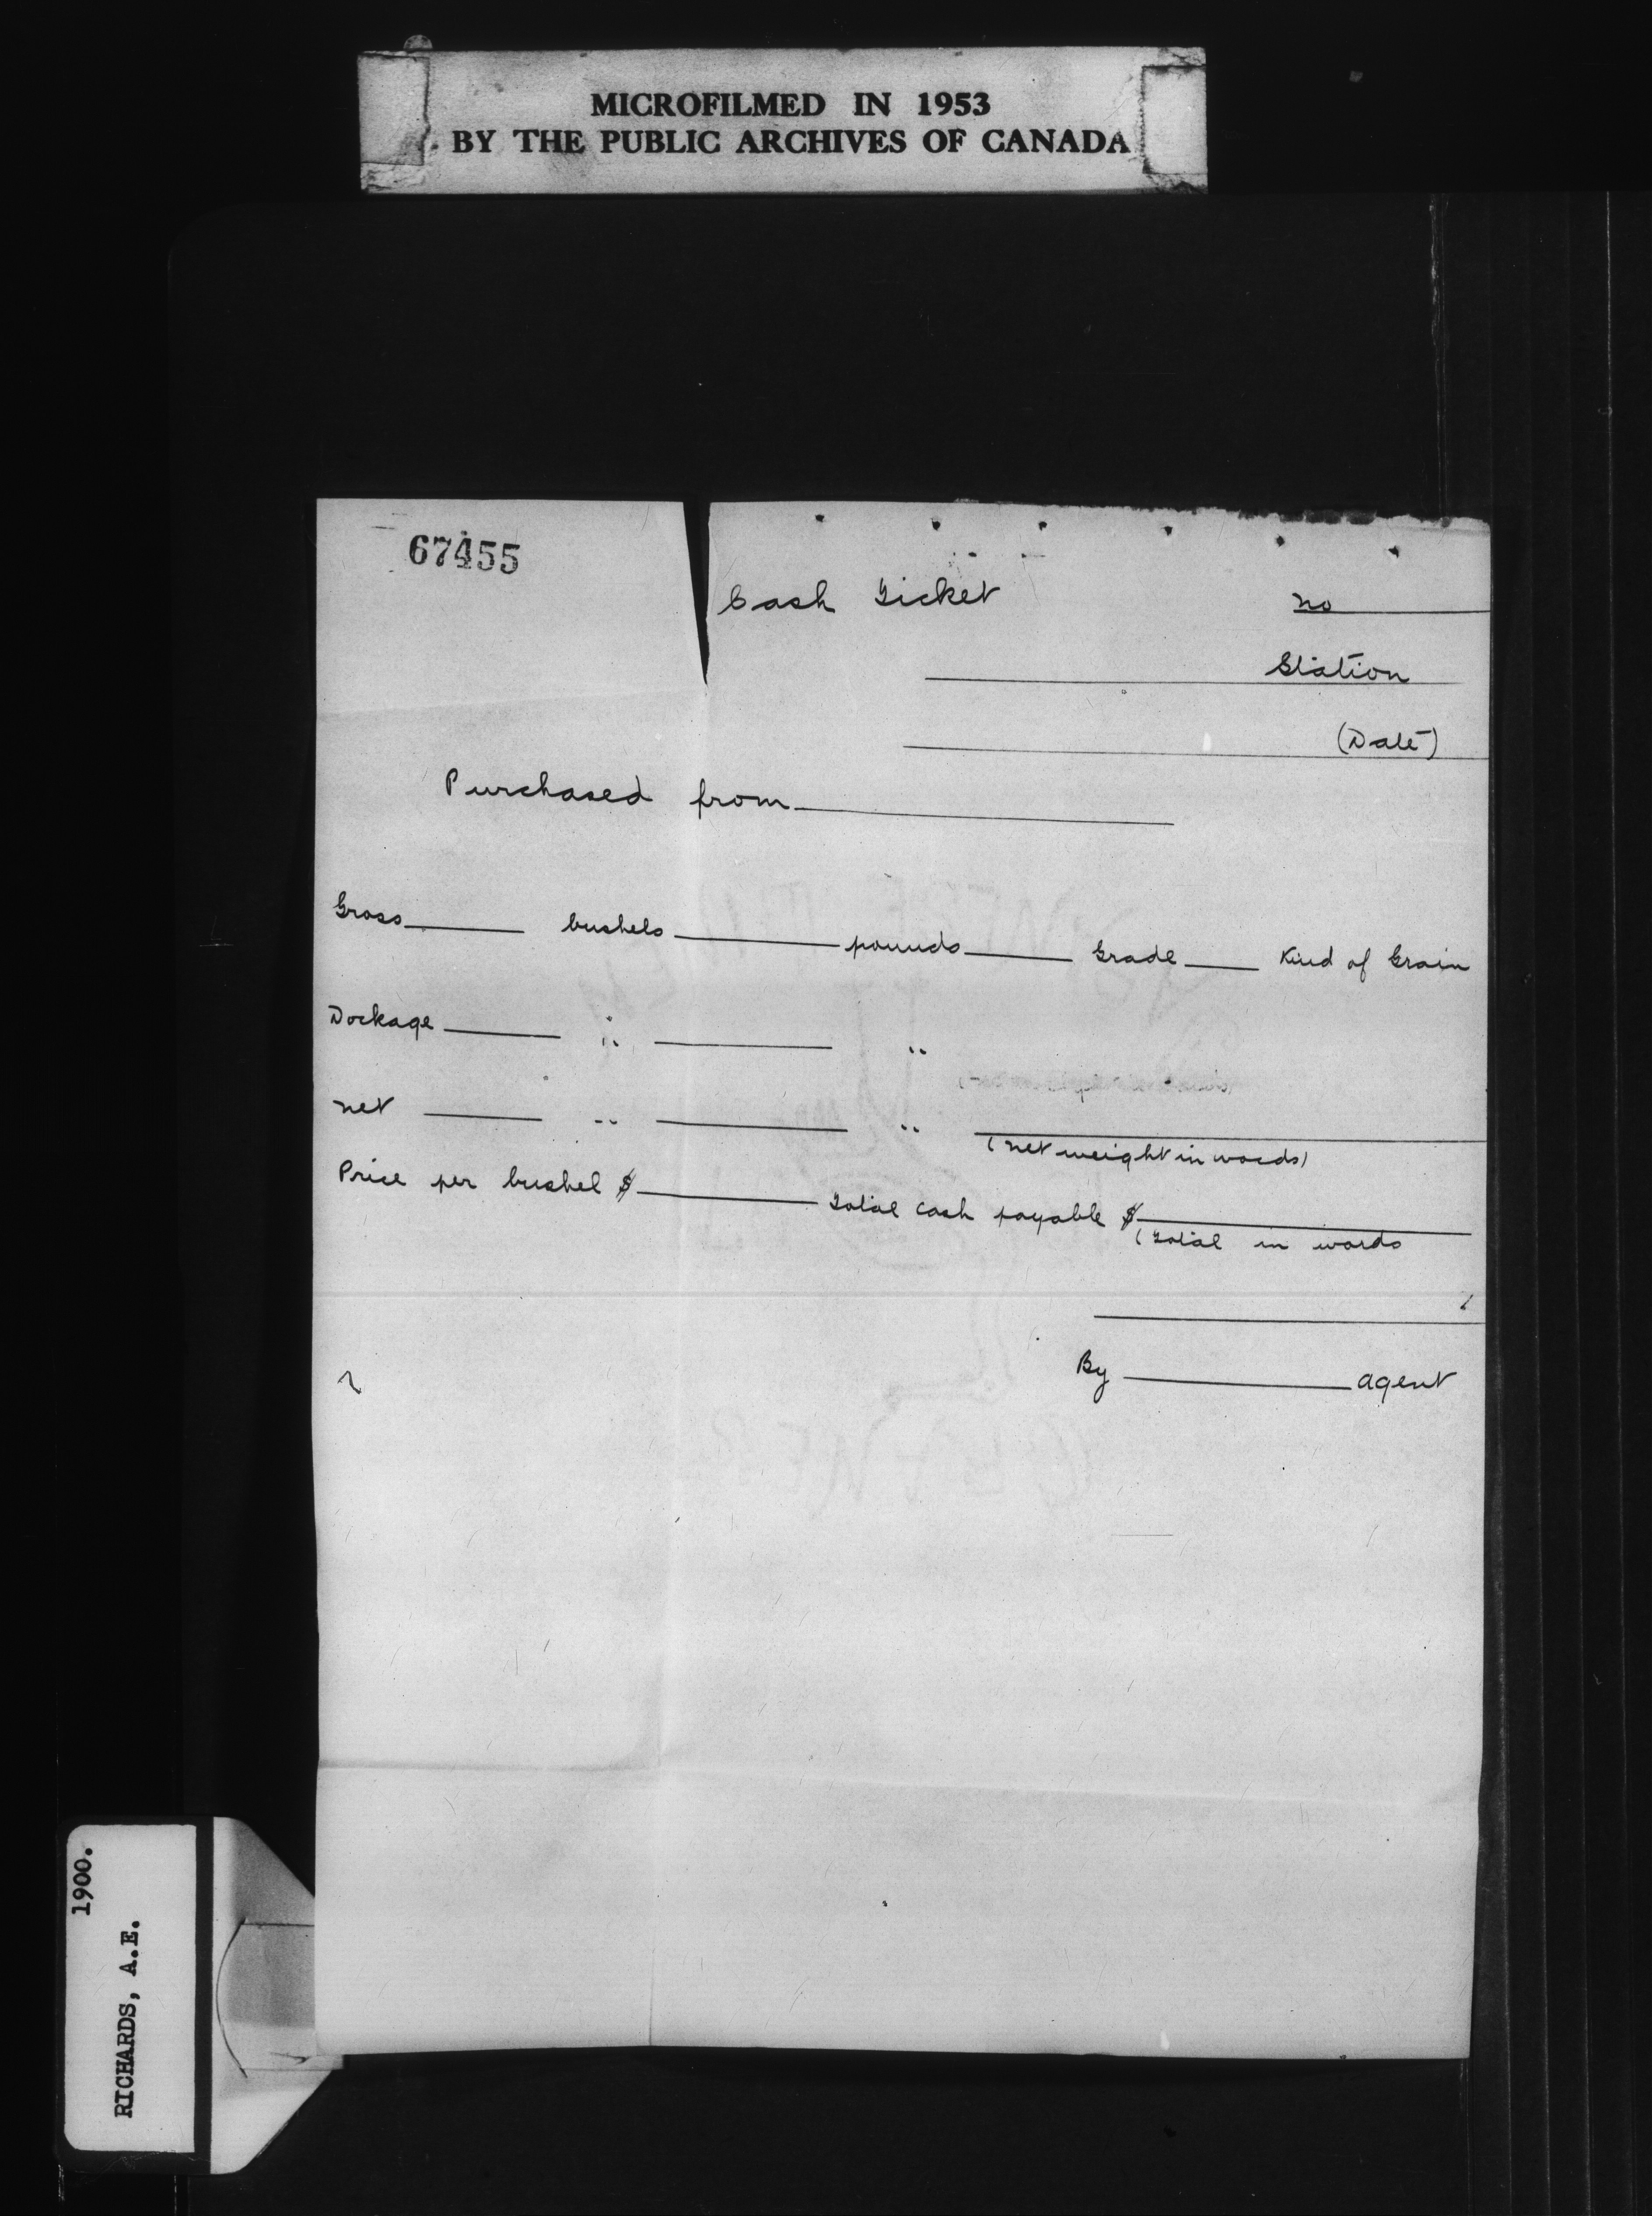 MICROFILMED IN 1953
BY THE PUBLIC ARCHIVES OF CANADA
67455
Cash Ticket No
Station
(Date)
Purchased from
Gross bushels pounds Grade Kind of Grain
Dockage " "
net " "
(net weight in words)
Price per bushel $ Total cash payable $
(Total in words
)
By agent
1900.
RICHARDS, A.E.